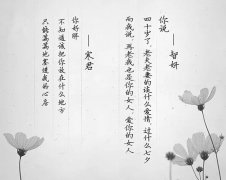 你说
——智妍
四十岁了，老夫老妻的谈什么爱情，过什么七夕
而我说，再老我也是你的女人，爱你的女人
——宋君
你好胖
不知道该把你放在什么地方
只能满满地塞进我的心房